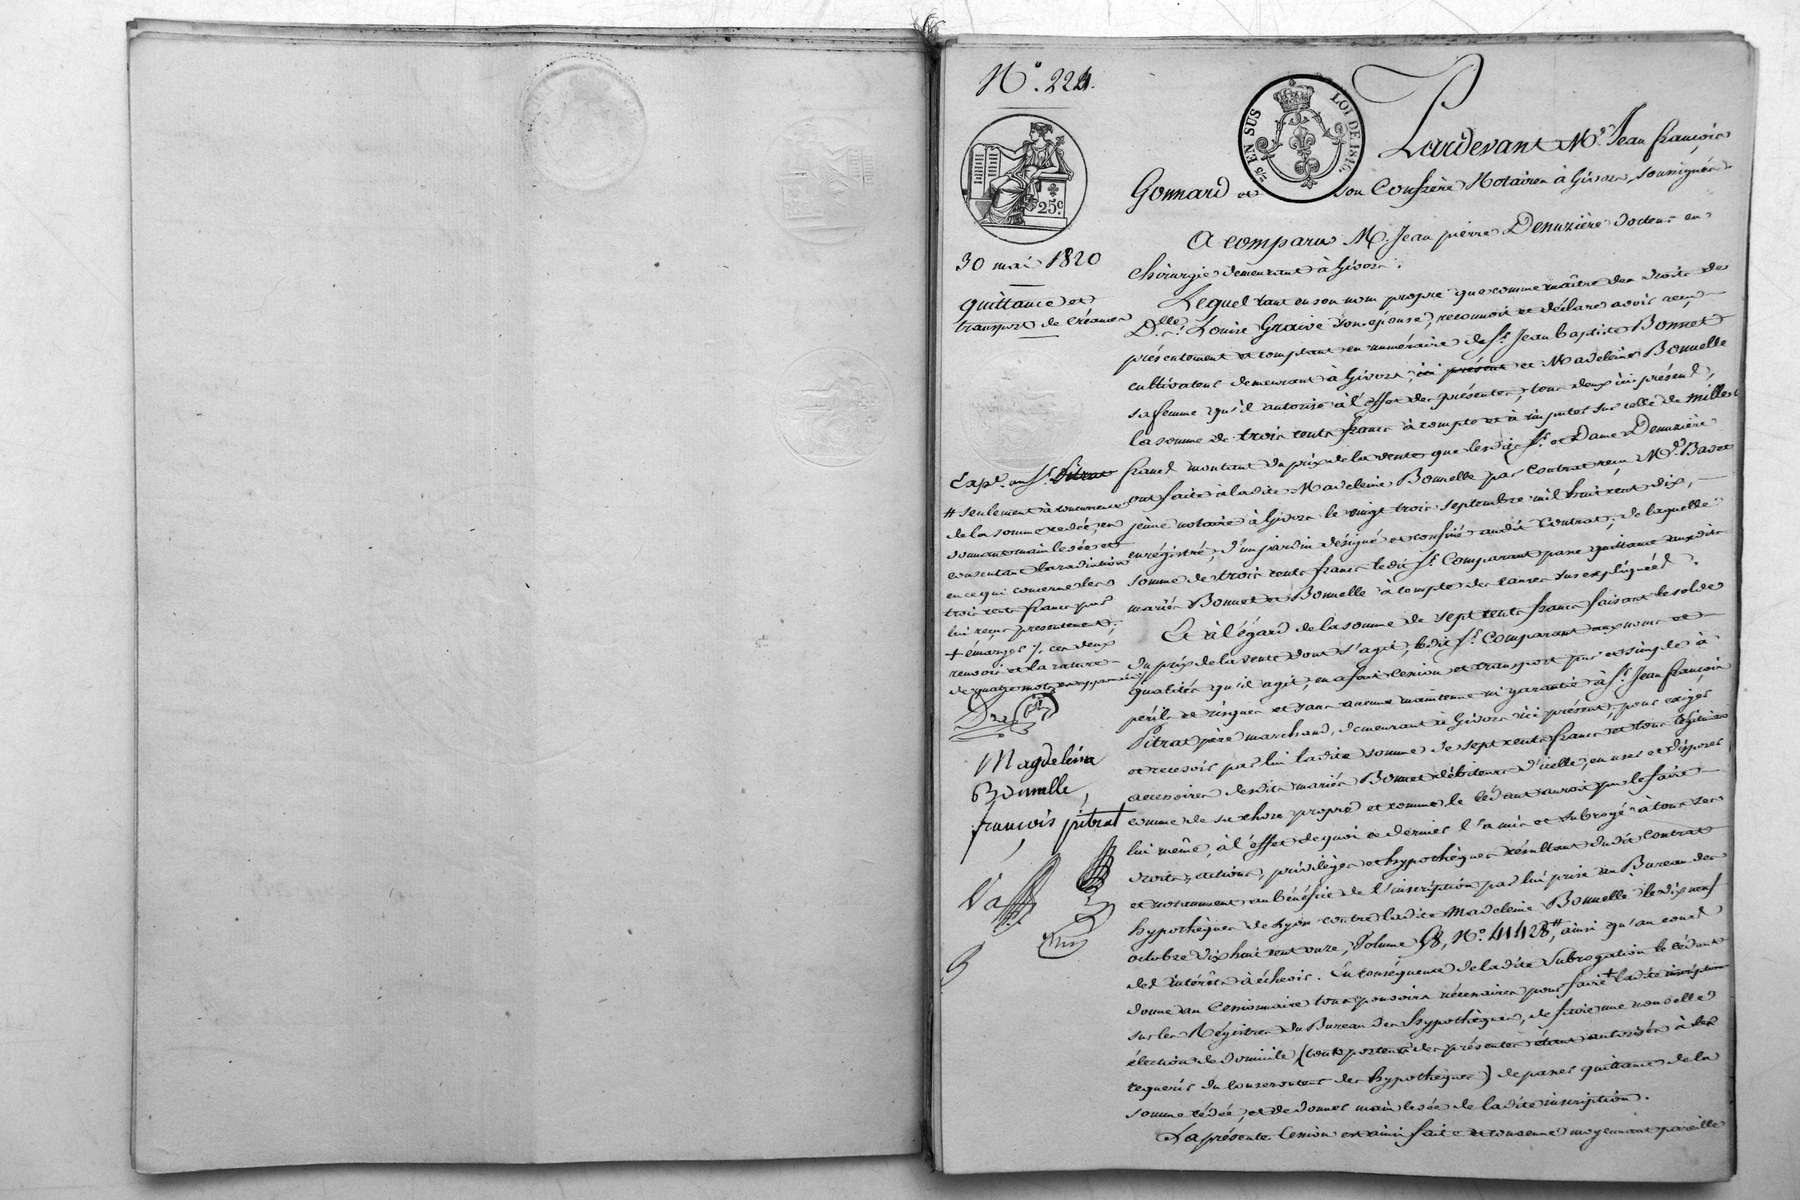 N.º 224.
25 EN SUS
LOI DE 1816.
25.c
30 mai 1820
quittance et
transport de Créances
Pardevant M.e Jean françois
Gonnard et son Confrère Notaires à Givors, soussignés
A comparu M. Jean pierre Denuzière docteur en
Chirurgie demeurant à Givors.
Lequel tant en son nom propre que comme maître des droits de
D.lle Louise Graive son épouse, reconnoit et déclare avoir reçu
présentement et comptant en numéraire de S.r Jean baptiste Bonnet
cultivateur demeurant à Givors, ici présent et Madeleine Bonnelle
sa femme qu'il autorise à l'effet des présentes, tous deux ici présens,
la somme de trois cents francs à compte et à imputer sur celle de mille
francs montant du prix de la vente que lesdits S.r et Dame Denuzière
ont faite à ladite Madeleine Bonnelle par Contrat reçu M.e Badet
jeune notaire à Givors le vingt trois septembre mil huit cent dix,
enregistré, d'un jardin désigné et confiné audit Contrat; de laquelle
somme de trois cents francs ledit S.r Comparant passe quittance auxdits
mariés Bonnet et Bonnelle à compte des causes sus expliquées.
Et à l'égard de la somme de sept cents francs faisant le solde
du prix de la vente dont s'agit, ledit S.r Comparant aux noms et
qualités qu'il agit, en a fait Cession et transport pur et simple à
périls et risques et sans aucune maintenue ni garantie à S.r Jean françois
Pitrat père marchand, demeurant à Givors ici présent, pour exiger
et recevoir par lui ladite somme de sept cents francs et tous légitimes
accessoires desdits mariés Bonnet débiteurs d'icelle, en user et disposer
comme de sa chose propre et comme le cédant auroit pu le faire
lui même, à l'effet de quoi ce dernier l'a mis et subrogé à tous ses
droits, actions, privilèges et hypothèques résultant dudit Contrat
et notamment au bénéfice de l'inscription par lui prise au Bureau des
hypothèques de Lyon contre ladite Madeleine Bonnelle le dix neuf
octobre dix huit cent onze, Volume 58, N.º 41428 #, ainsi qu'au cours
des intérêts à échoir. En conséquence de ladite Subrogation le cédant
donne au Cessionnaire tous pouvoirs nécessaires pour faire + ladite inscription
sur les Régistres du Bureau des hypothèques, de faire une nouvelle
élection de domicile (tout porteur des présentes étant autorisés à les
requérir du Conservateur des hypothèques) de passer quittance de la
somme cédée, et de donner main levée de ladite inscription.
La présente Cession est ainsi faite et consentie moyennant pareille
Exp.é au S.r Pitrat
# seulement à concurrence
de la somme cédée, en
donnant main levée et
consentant la radiation
en ce qui concerne les
trois cents francs par
lui reçus présentement.
+ émarger /. ces deux
renvois et la rature
de quatre mots
Magdeleine
Bonnelle
françois pitrat